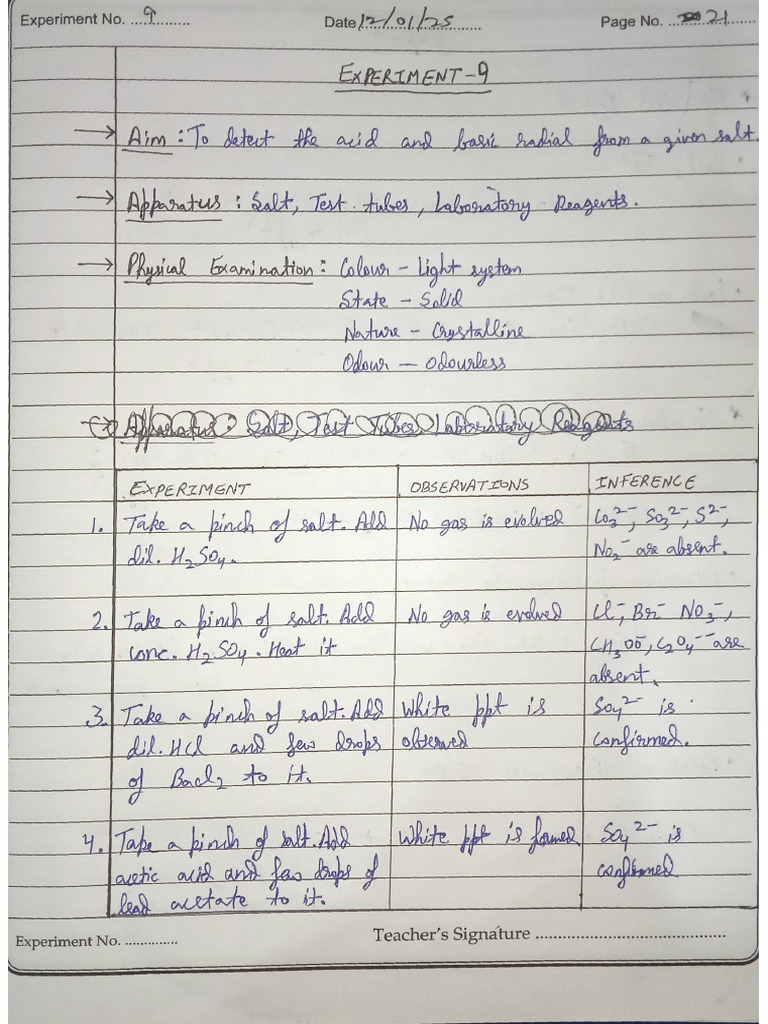 Experiment No. ...9............
Date 12/01/25..........
Page No. ......21......
EXPERIMENT-9
→ Aim : To detect the acid and basic radial from a given salt.
→ Apparatus : Salt, Test tubes, Laboratory Reagents.
→ Physical Examination : Colour - Light system
State - Solid
Nature - Crystalline
Odour - Odourless
→ Apparatus : Salt, Test Tubes, Laboratory Reagents
EXPERIMENT OBSERVATIONS INFERENCE
1. Take a pinch of salt. Add No gas is evolved CO₃²⁻, SO₃²⁻, S²⁻,
dil. H₂SO₄. NO₂⁻ are absent.
2. Take a pinch of salt. Add No gas is evolved Cl⁻, Br⁻ NO₃⁻,
conc. H₂SO₄. Heat it CH₃OO⁻, C₂O₄⁻⁻ are
absent.
3. Take a pinch of salt. Add White ppt is SO₄²⁻ is
dil. HCl and few drops observed confirmed.
of BaCl₂ to it.
4. Take a pinch of salt. Add White ppt is formed SO₄²⁻ is
acetic acid and few drops of confirmed
lead acetate to it.
Experiment No. ..............
Teacher's Signature ........................................